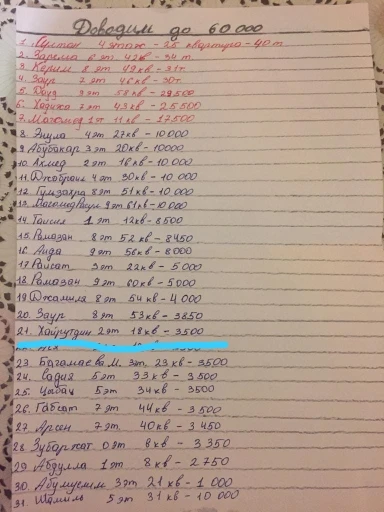 Доводим до 60 000
1. Султан 4 этаж - 25 квартира - 40 т.
2. Зарема 6 эт 42 кв - 34 т.
3. Керим 8 эт 49 кв - 31 т.
4. Заур 7 эт 46 кв - 30 т.
5. Дауд 3 эт 58 кв - 29500
6. Хадижа 7 эт 43 кв - 25 500
7. Магомед 1 эт 11 кв - 17500
8. 4 эт 27 кв - 10 000
9. Абубакар 3 эт 20 кв - 10000
10. Ахмед 2 эт 16 кв - 10 000
11. Джабраил 4 эт 30 кв - 10 000
12. 8 эт 51 кв - 10 000
13. 9 эт 61 кв - 10000
14. 1 эт 12 кв - 8500
15. Рамазан 8 эт 52 кв - 8450
16. Аида 9 эт 56 кв - 8000
17. Раисат 3 эт 22 кв - 5 000
18. Рамазан 9 эт 60 кв - 5000
19. Джамиля 8 эт 54 кв - 4 000
20. Заур 8 эт 53 кв - 3850
21. Хайрутдин 2 эт 18 кв - 3500
23. Багамаева М. 3 эт. 23 кв - 3500
24. Садия 5 эт 33 кв - 3500
25. 5 эт 34 кв - 3500
26. Габсат 7 эт 44 кв - 3 500
27. Арсен 7 эт 40 кв - 3 450
28. Зубаржат 0 эт 8 кв - 3 350
29. Абдулла 1 эт 8 кв - 2 750
30. Абумуслим 3 эт 21 кв - 1 000
31. Шамиль 5 эт 31 кв - 10 000